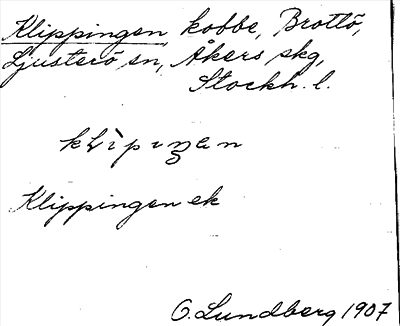 Klippingen kobbe, Brottö,
Ljusterö sn, Åkers skg,
Stockh. l.
Klippingen ek
O. Lundberg 1907